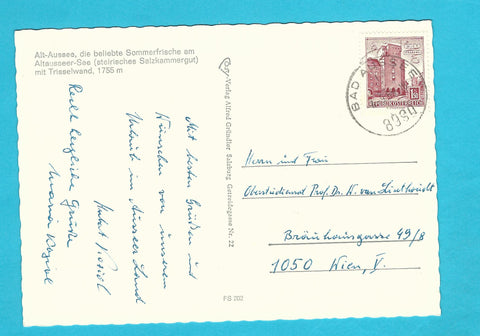 Alt-Aussee, die beliebte Sommerfrische am
Altausseer-See (steirisches Salzkammergut)
mit Trisselwand, 1755 m
Mit besten Grüßen und
Wünschen von unserem
Urlaub im Ausseer Land
Hubert
Recht herzliche Grüße
Maria
Cosy-Verlag Alfred Gründler Salzburg Getreidegasse Nr. 22
FS 202
BAD AUSSEE
8990
REPUBLIK ÖSTERREICH
Herrn und Frau
Oberstudienrat Prof. Dr. H. van
Bräuhausgasse 49/8
1050 Wien, V.